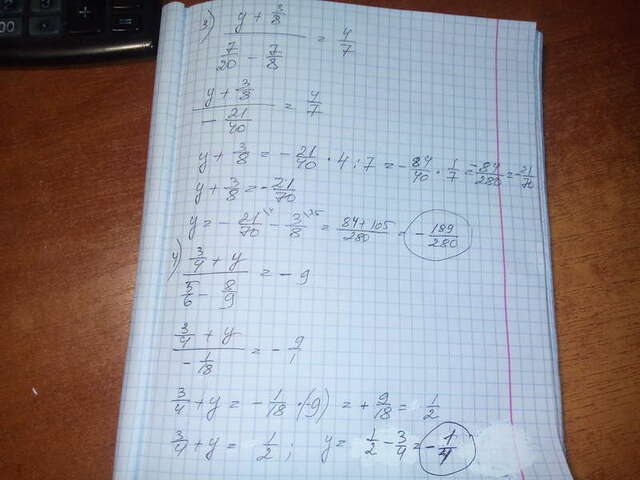 3) (y + 3/8) / (7/20 - 7/8) = 4/7
(y + 3/8) / (- 21/40) = 4/7
y + 3/8 = - 21/40 · 4 : 7 = - 84/40 · 1/7 = -84/280 = -21/70
y + 3/8 = - 21/70
y = - 21/70 - 3/8 = (84+105)/280 = - 189/280
4) (3/4 + y) / (5/6 - 8/9) = - 9
(3/4 + y) / (- 1/18) = - 9/1
3/4 + y = - 1/18 · (-9) = + 9/18 = 1/2
3/4 + y = 1/2 ; y = 1/2 - 3/4 = - 1/4